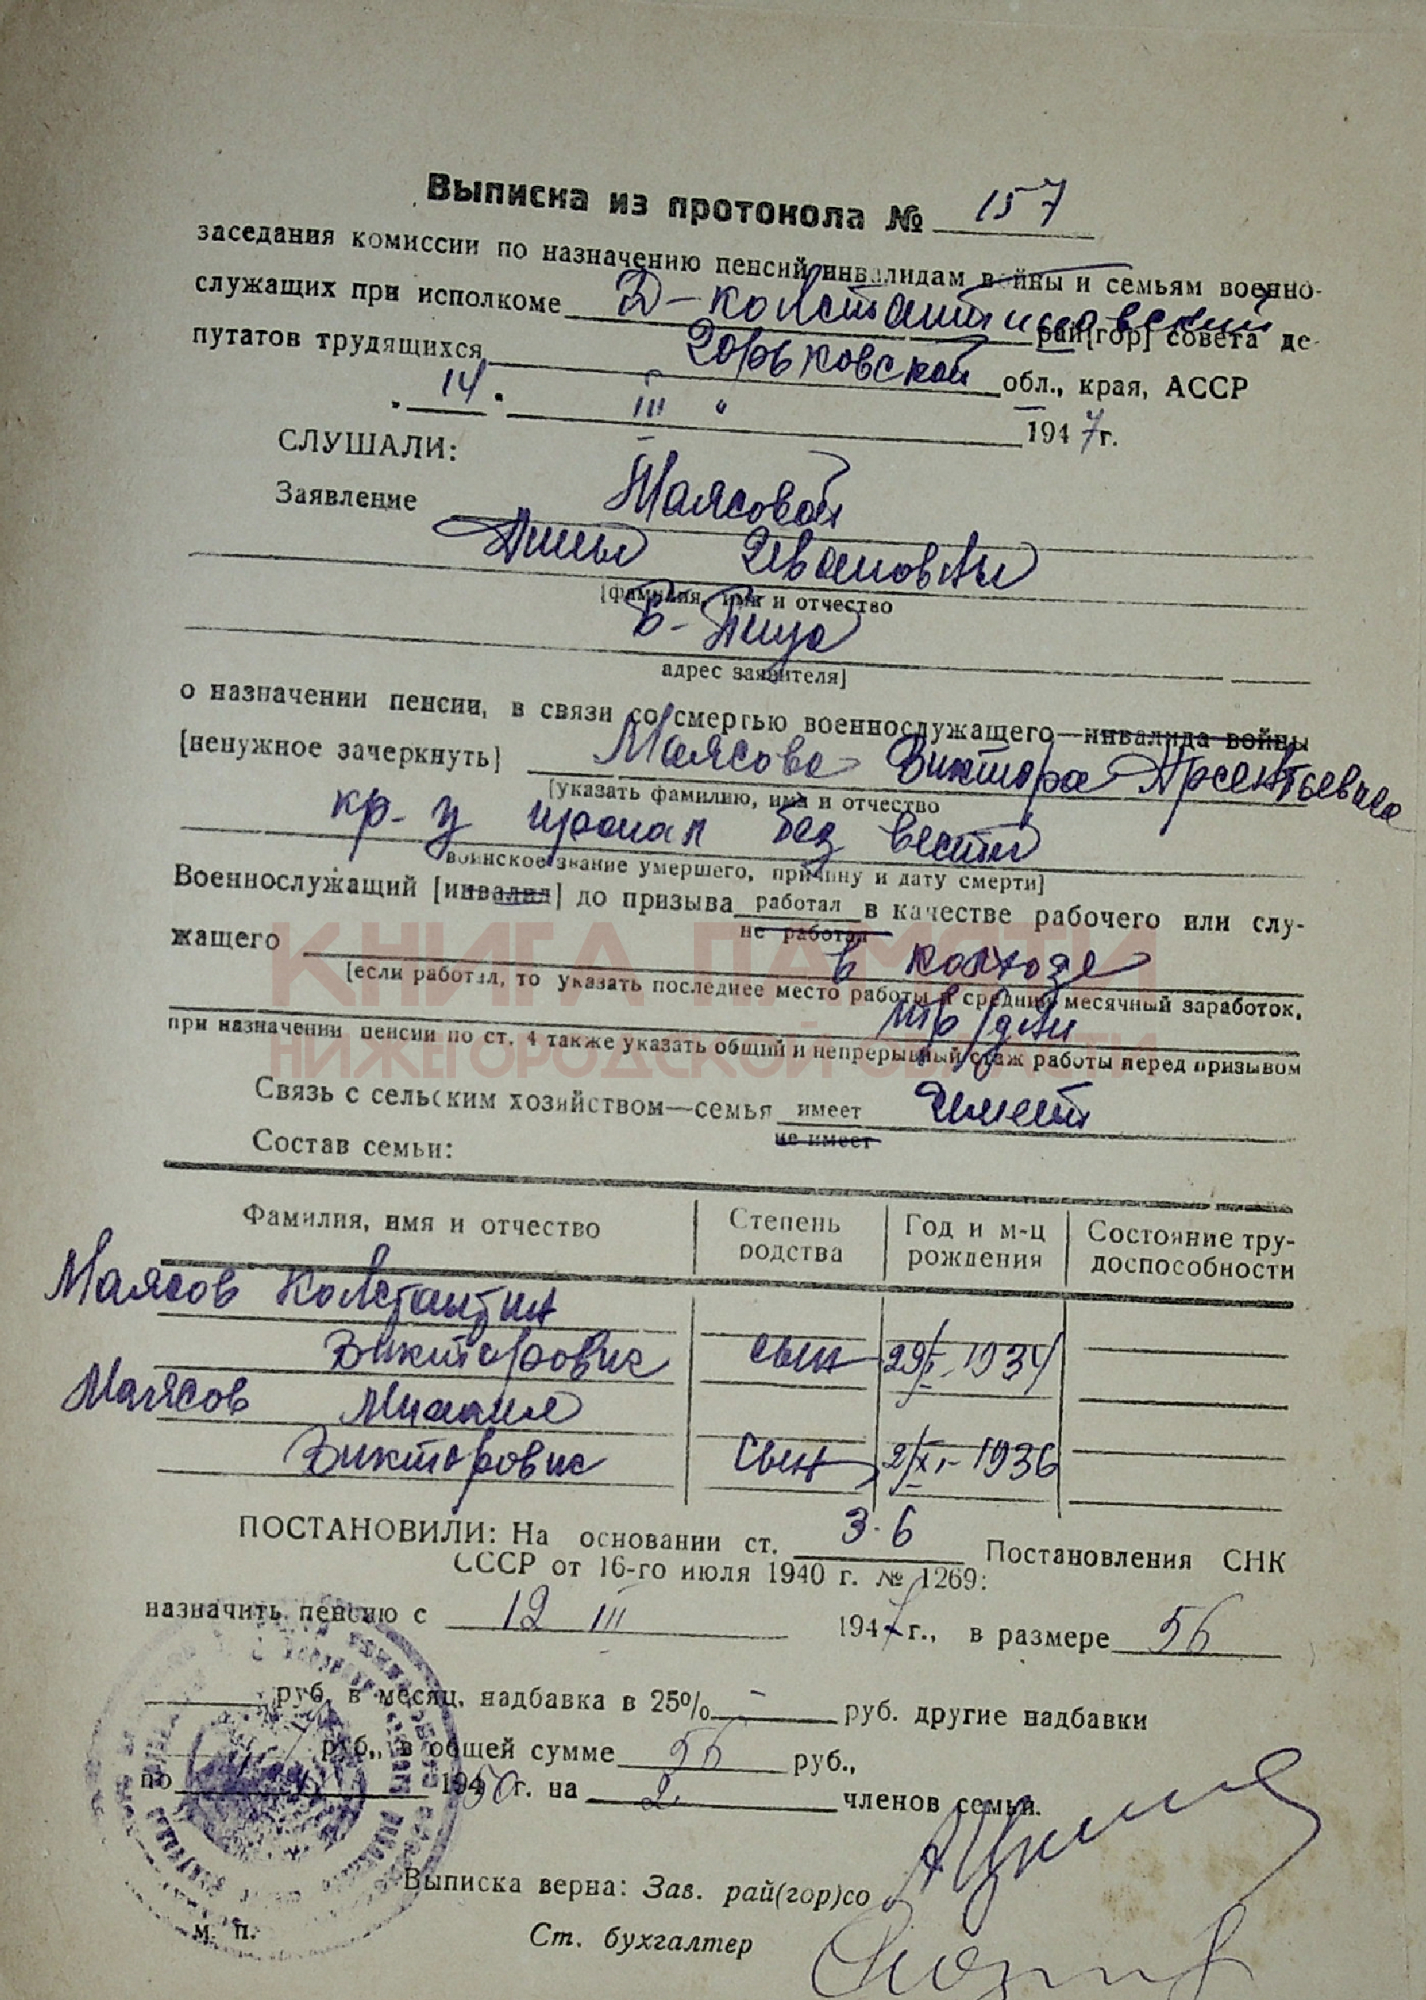 Выписка из протокола № 157
заседания комиссии по назначению пенсий инвалидам войны и семьям военно-
служащих при исполкоме Д-Константиновский рай[гор] совета де-
путатов трудящихся Горьковской обл., края, АССР
14 " III " 1947 г.
СЛУШАЛИ:
Заявление Маясовой
Анны Ивановны
[фамилия, имя и отчество
Б-Пица
адрес заявителя]
о назначении пенсии, в связи со смертью военнослужащего—инвалида войны
[ненужное зачеркнуть] Маясова Виктора Арсентьевича
[указать фамилию, имя и отчество
кр-ц пропал без вести
воинское звание умершего, причину и дату смерти]
Военнослужащий [инвалид] до призыва работал в качестве рабочего или слу-
не работал
жащего в колхозе
[если работал, то указать последнее место работы и средний месячный заработок,
при назначении пенсии по ст. 4 также указать общий и непрерывный стаж работы перед призывом
КНИГА ПАМЯТИ
НИЖЕГОРОДСКОЙ ОБЛАСТИ
Связь с сельским хозяйством—семья имеет имеет
не имеет
Состав семьи:
Фамилия, имя и отчество Степень родства Год и м-ц рождения Состояние тру-доспособности
Маясов Константин
Викторович сын 29/V-1934
Маясов Михаил
Викторович сын 2/XI-1936
ПОСТАНОВИЛИ: На основании ст. 3-6 Постановления СНК
СССР от 16-го июля 1940 г. № 1269:
назначить пенсию с 12 III 1947 г., в размере 56
руб. в месяц, надбавка в 25% — руб. другие надбавки
руб., в общей сумме 56 руб.,
по 1950 г. на 2 членов семьи.
Выписка верна: Зав. рай(гор)со
Ст. бухгалтер
м. п.